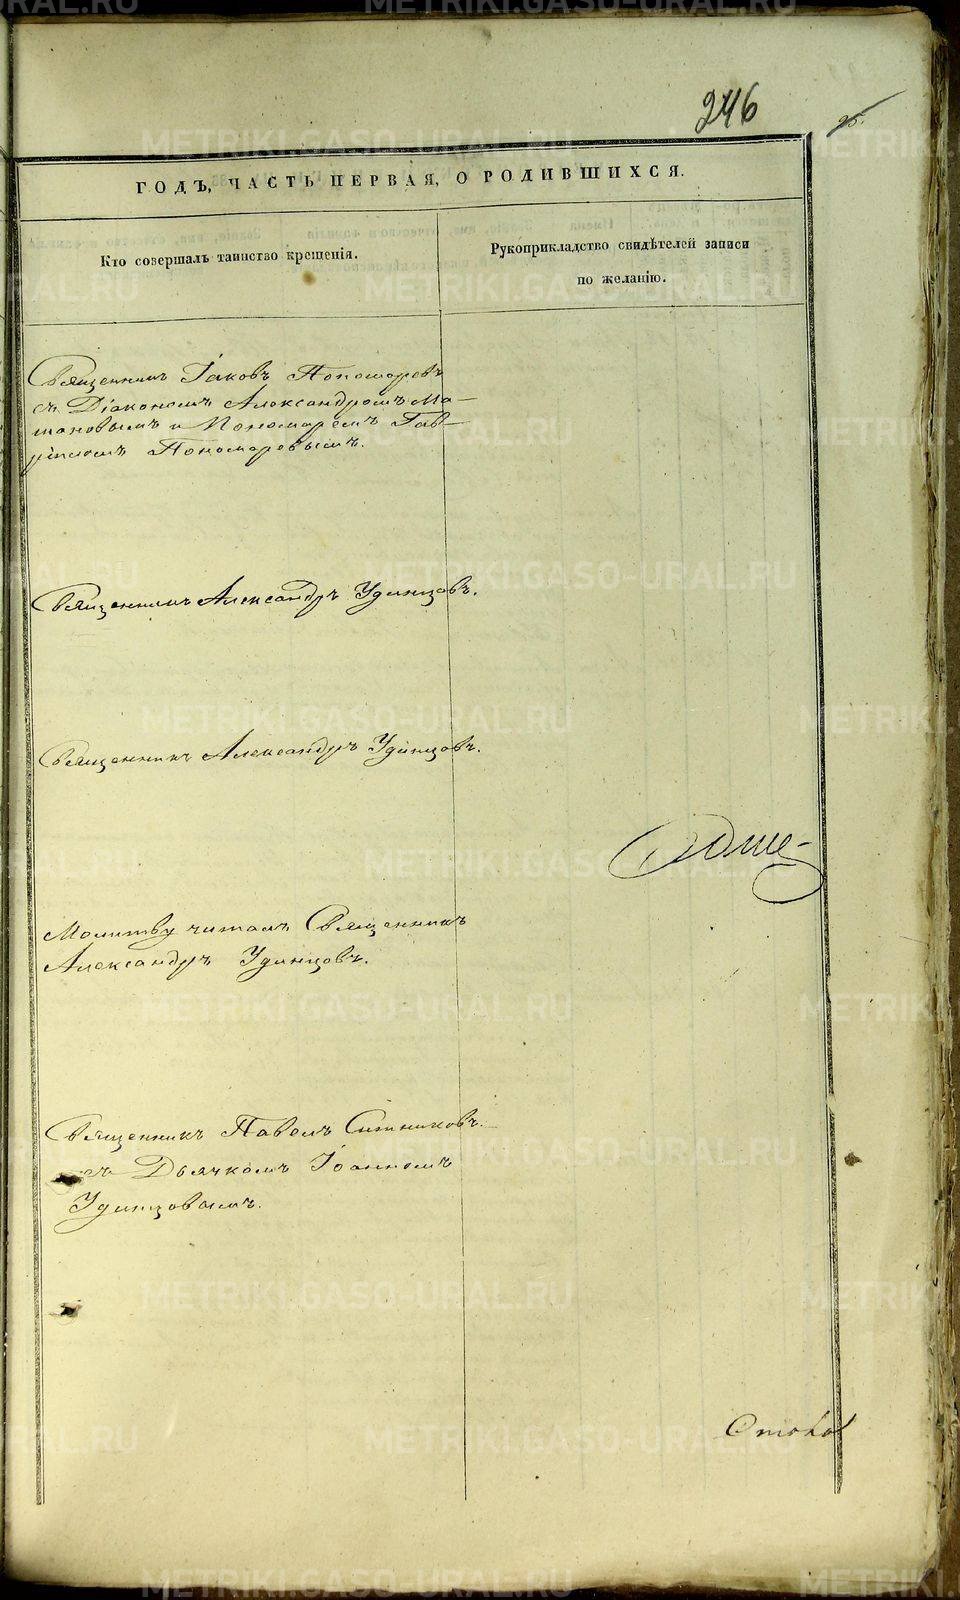 246
25.
ГОДЪ, ЧАСТЬ ПЕРВАЯ, О РОДИВШИХСЯ.
Кто совершалъ таинство крещенія.
Рукоприкладство свидѣтелей записи
по желанію.
Священникъ Іаковъ Пономаревъ
съ Діакономъ Александромъ Ма-
мановымъ и Пономаремъ Гав-
ріиломъ Пономаревымъ.
Священникъ Александръ Удинцовъ.
Священникъ Александръ Удинцовъ.
Молитву читалъ Священникъ
Александръ Удинцовъ.
Священникъ Павелъ Ситниковъ.
съ Дьячкомъ Іоанномъ
Удинцовымъ.
METRIKI.GASO-URAL.RU